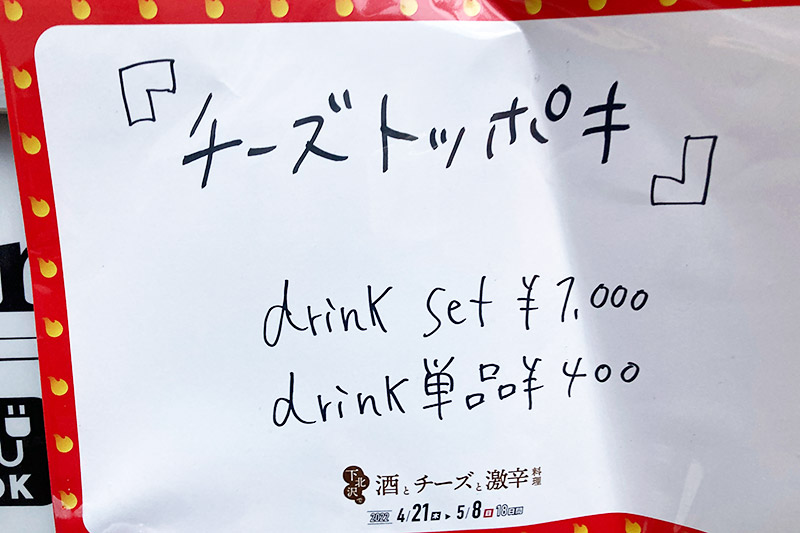 『チーズトッポキ』
drink set ¥1,000
drink 単品¥400
下北沢で 酒とチーズと激辛料理
2022 4/21木▸5/8日 18日間
OK